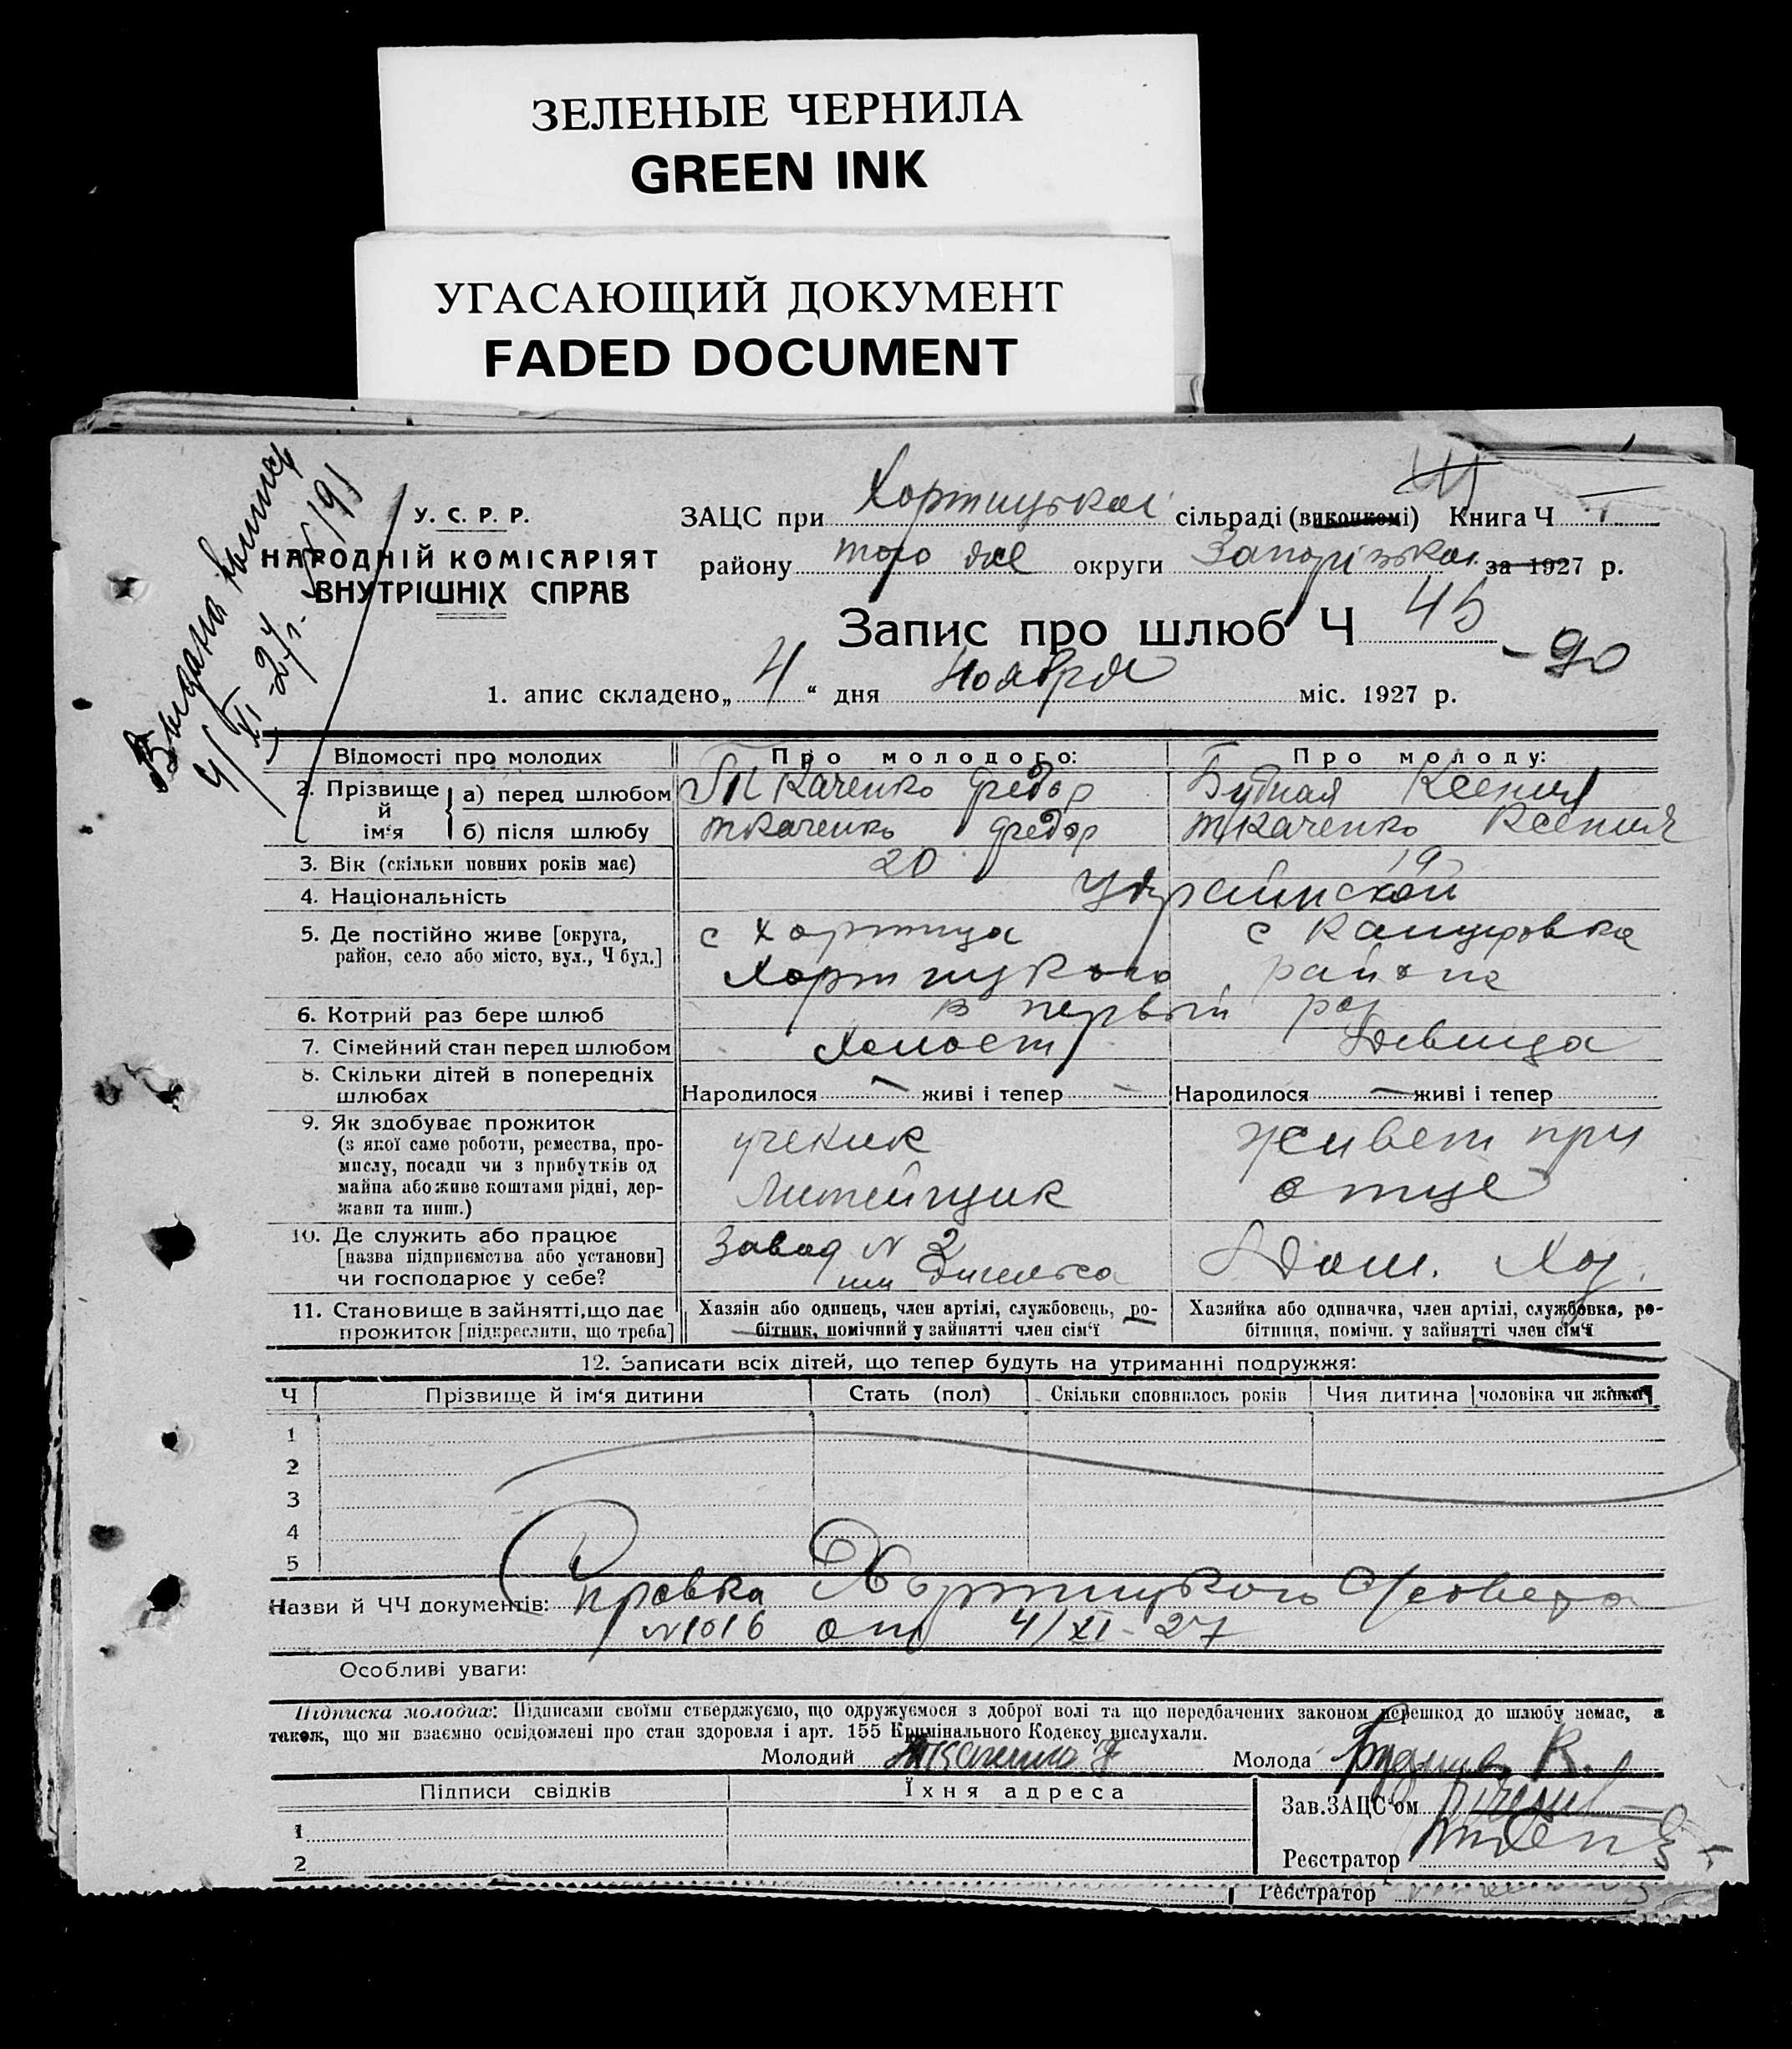 ЗЕЛЕНЫЕ ЧЕРНИЛА
GREEN INK
УГАСАЮЩИЙ ДОКУМЕНТ
FADED DOCUMENT
У. С. Р. Р.
НАРОДНІЙ КОМІСАРІЯТ
ВНУТРІШНІХ СПРАВ
ЗАЦС при Хортицькой сільраді (виконкомі) Книга Ч
району того же округи Запорізькой за 1927 р.
Запис про шлюб Ч 45
- 90
1. апис складено „ 4 “ дня Ноября міс. 1927 р.
Відомості про молодих Про молодого: Про молоду:
2. Прізвище й ім‘я а) перед шлюбом Ткаченко Федор Будная Ксения
б) після шлюбу Ткаченко Федор Ткаченко Ксения
3. Вік (скільки повних років має) 20 19
4. Національність Украинской
5. Де постійно живе [округа, с Хортица с Канцеровка
район, село або місто, вул., Ч буд.] Хортицкого района
6. Котрий раз бере шлюб в первый раз
7. Сімейний стан перед шлюбом Холост Девица
8. Скільки дітей в попередніх
шлюбах Народилося — живі і тепер — Народилося — живі і тепер
9. Як здобуває прожиток
(з якої саме роботи, ремества, про- ученик Живет при
мислу, посади чи з прибутків од
майна або живе коштами рідні, дер- Литейщик отце
жави та инш.)
10. Де служить або працює Завод N 2
[назва підприємства або установи] им Энгельса Дом. Хоз.
чи господарює у себе?
11. Становище в зайнятті, що дає Хазяін або одинець, член артілі, службовець, ро- Хазяйка або одиначка, член артілі, службовка, ро-
прожиток [підкреслити, що треба] бітник, помічний у зайнятті член сім‘ї бітниця, помічн. у зайнятті член сім‘ї
12. Записати всіх дітей, що тепер будуть на утриманні подружжя:
Ч Прізвище й ім‘я дитини Стать (пол) Скільки сповнилось років Чия дитина [чоловіка чи жінки]
1
2
3
4
5
Назви й ЧЧ документів: Справка Хортицкого С/совета
N 1016 от 4/XI-27
Особливі уваги:
Підписка молодих: Підписами своїми стверджуємо, що одружуємося з доброї волі та що передбачених законом перешкод до шлюбу немає, а
також, що ми взаємно освідомлені про стан здоровля і арт. 155 Кримінального Кодексу вислухали.
Молодий Ткаченко Ф Молода К.
Підписи свідків Їхня адреса
Зав. ЗАЦС‘ом
1
Реєстратор
2
Реєстратор